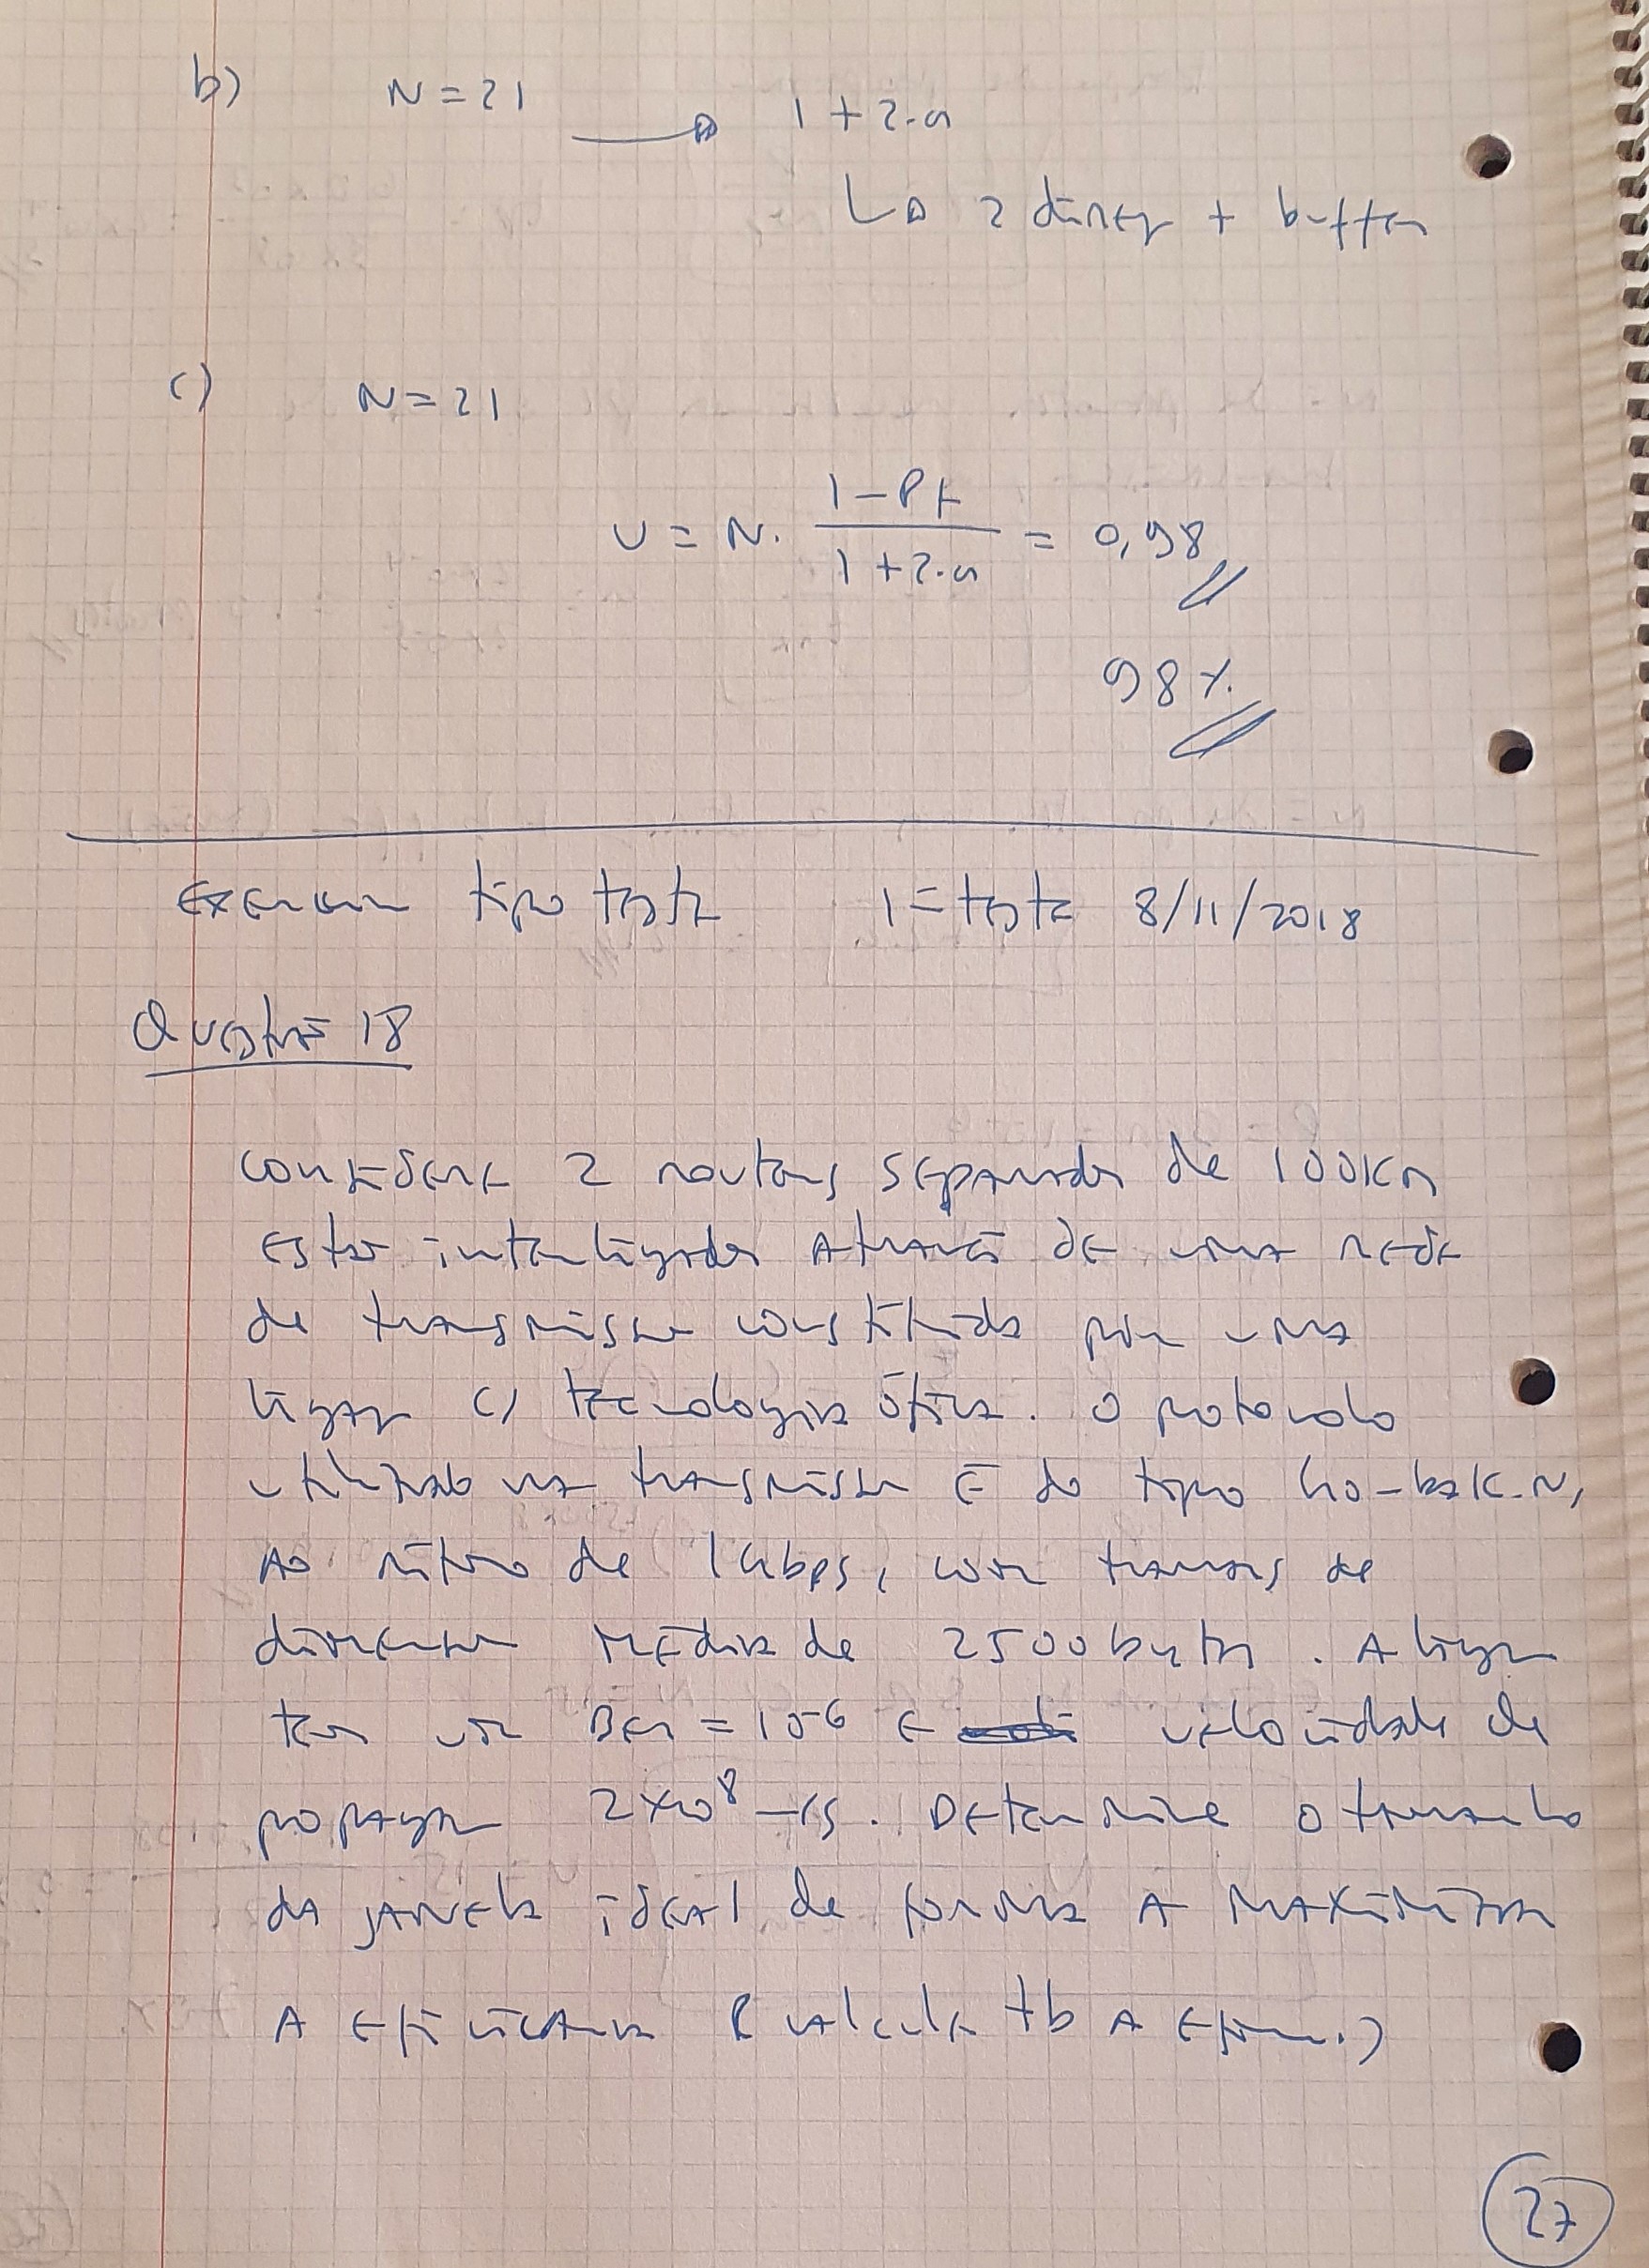 b) N = 21 → 1 + 2.a
↳ 2 direç + buffer
c) N = 21
U = N. (1 - Pf) / (1 + 2.a) = 0,98
98 %
Exercício tipo teste 1º teste 8/11/2018
Questão 18
Considere 2 routers separados de 100Km
estão interligados através de uma rede
de transmissão constituída por uma
ligação c/ tecnologia ótica. O protocolo
utilizado na transmissão é do tipo Go-bak-N,
ao ritmo de 1Gbps, com tramas de
dimensão média de 2500 bytes. A ligação
tem um Ber = 10-6 e velocidade de
propagação 2x10^8 m/s. Determine o tamanho
da janela ideal de forma a maximizar
a eficiência (calcule tb a efici.)
27